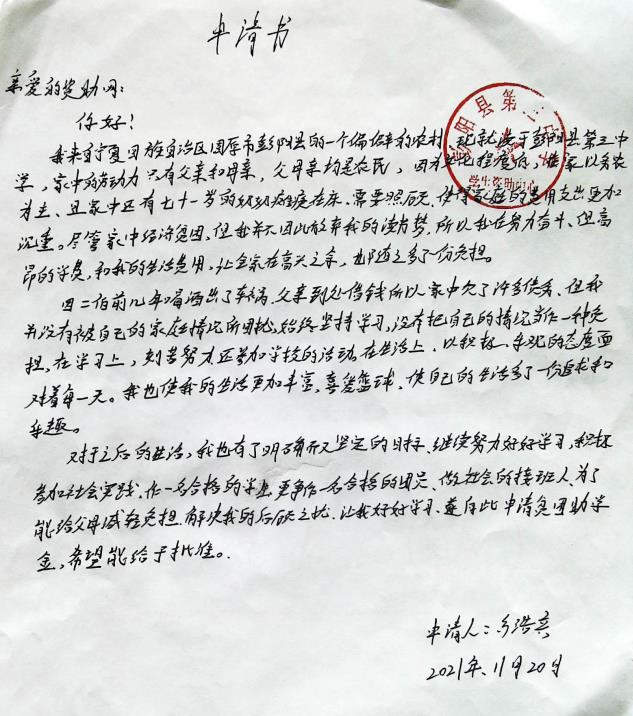 申请书
亲爱的资助网:
你好!
我来自宁夏回族自治区固原市彭阳县的一个偏僻的农村,现就读于彭阳县第三中
学,家中的劳动力只有父亲和母亲,父母亲均是农民,因为文化程度低,谁家以务农
为主,且家中还有七十一岁的奶奶瘫痪在床、需要照顾,使得家庭的费用支出更加
沉重。尽管家中经济贫困,但我并不因此放弃我的读书梦,所以我在努力奋斗、但高
昂的学费,和我的生活费用,让全家在高兴之余,也随之多了一份负担。
因二伯前几年喝酒出了车祸,父亲到处借钱所以家中欠了许多债务、但我
并没有被自己的家庭情况所困扰,始终坚持学习,没有把自己的情况当作一种负
担,在学习上,刻苦努力,还参加学校的活动,在生活上、以积极、乐观的态度面
对着每一天。我也使我的生活更加丰富,喜爱篮球、使自己的生活多了一份追求和
乐趣。
对于之后的生活,我也有了明确而又坚定的目标、继续努力好好学习,积极
参加社会实践、作一名合格的学生,更争作一名合格的团员、做社会的接班人、为了
能给父母减轻负担、解决我的后顾之忧、让我好好学习、兹向此申请贫困助学
金,希望能给予批准。
申请人:乔浩
2021年11月20日
彭阳县第三中学
学生资助中心